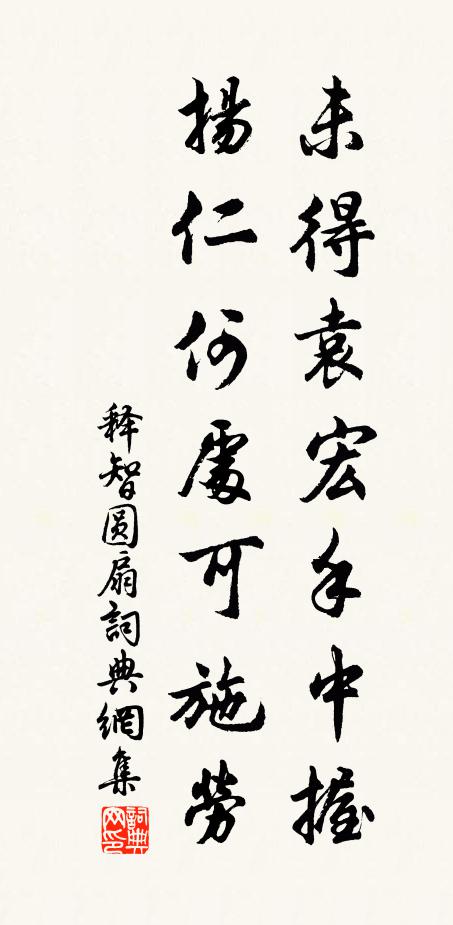 未得袁宏手中握
揚仁何處可施勞
释智圆扇詞典網集
詞典
网印